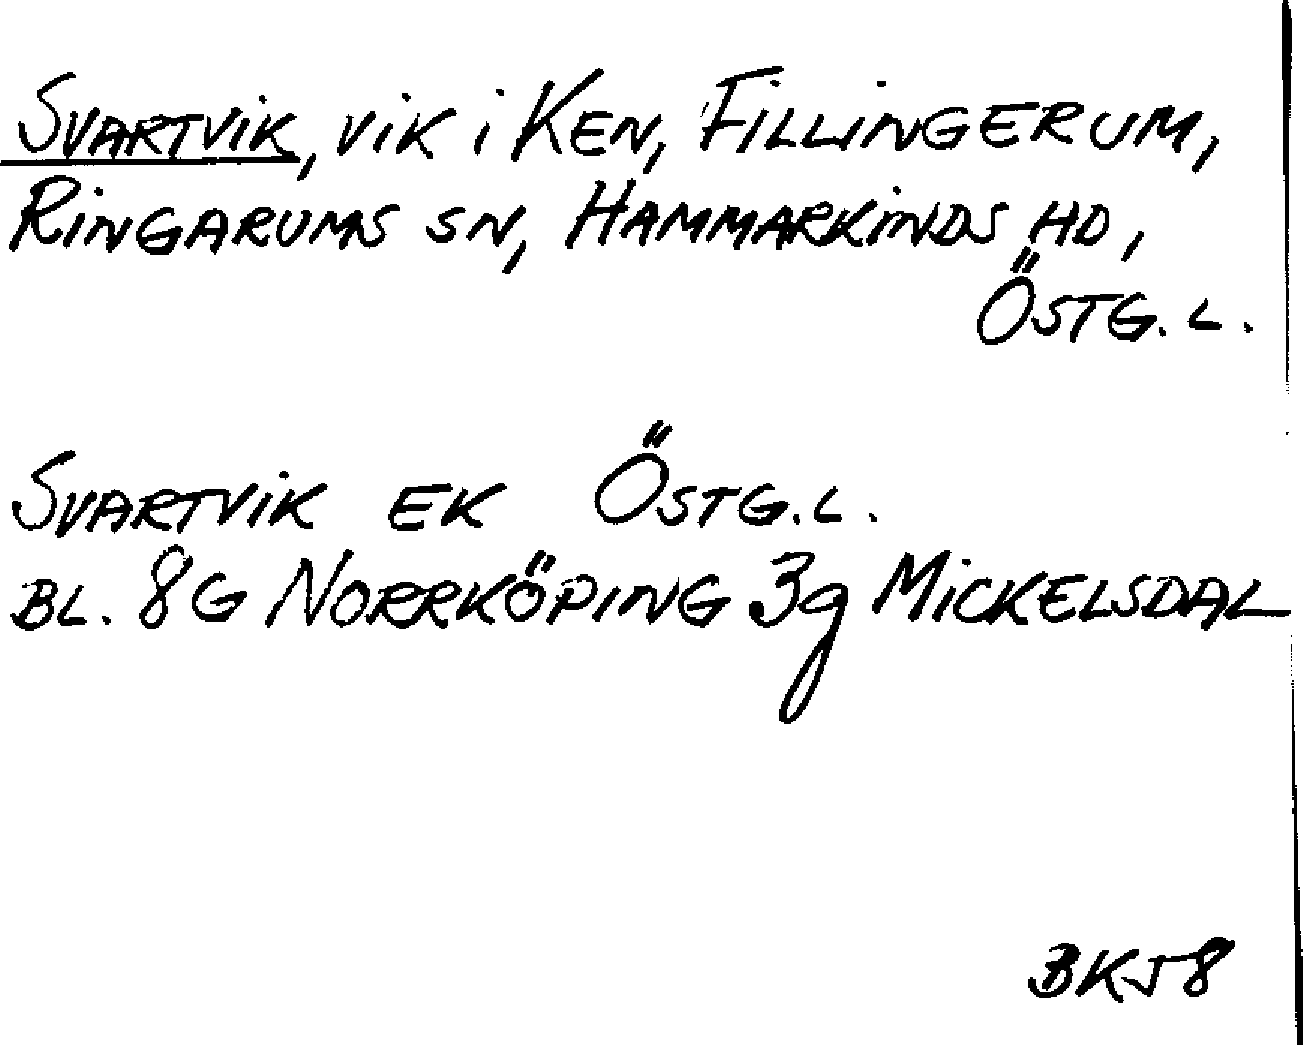 Svartvik, vik i Ken, Fillingerum,
Ringarums sn, Hammarkinds hd,
Östg. l.
Svartvik EK Östg. l.
Bl. 8G Norrköping 3g Mickelsdal
BKJ8